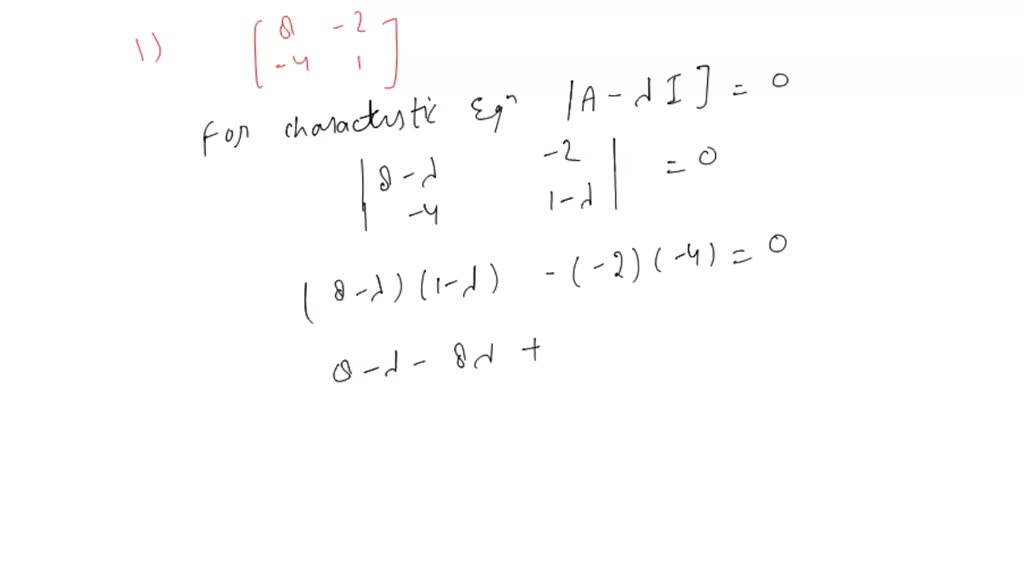 1) [ 8 -2
-4 1 ]
For charactestic Eqⁿ |A - λI] = 0
| 8-λ -2
-4 1-λ | = 0
(8-λ)(1-λ) -(-2)(-4) = 0
8-λ- 8λ +